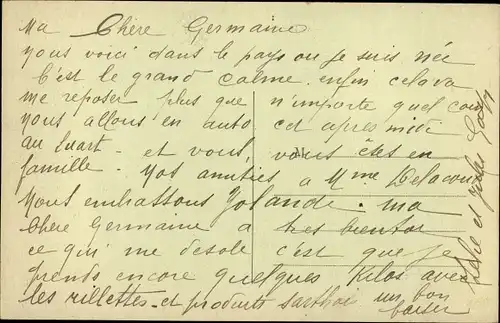 Ma Chère Germaine
nous voici dans le pays ou je suis née
C'est le grand calme enfin cela va
me reposer plus que n'importe quel
nous allons en auto cet après midi
au Luart - et vous, vous êtes en
famille - Nos amitiés a Mme Delacour
Nous embrassons Yolande. ma
Chère Germaine a très bientot
ce qui me desole c'est que je
prends encore quelques Kilos avec
les rillettes - et produits sarthois un bon
baiser